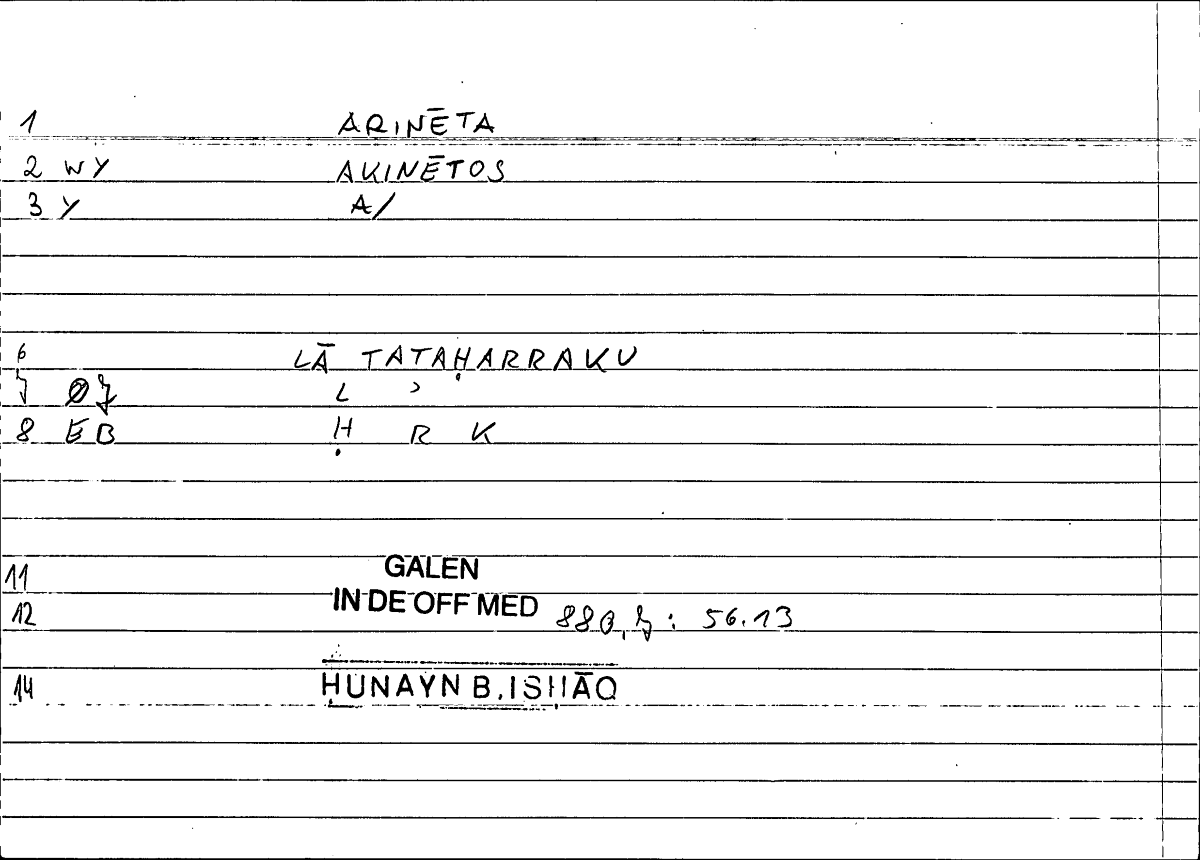 1 ARINĒTA
2 WY AKINĒTOS
3 Y A/
6 LĀ TATAḤARRAKU
7 Ø7 L ʾ
8 EB Ḥ R K
11 GALEN
12 IN DE OFF MED 880,7: 56.13
14 ḤUNAYN B. ISḤĀQ